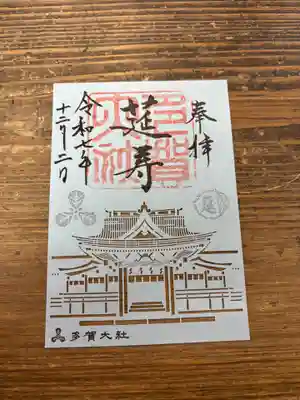 奉拝
多賀大社
延寿
令和七年
十二月二日
多賀大社